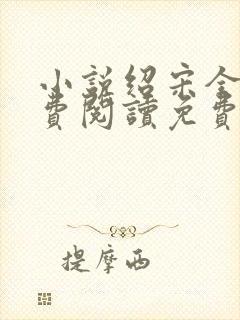 小說紹宋全
費閱讀免費
提摩西